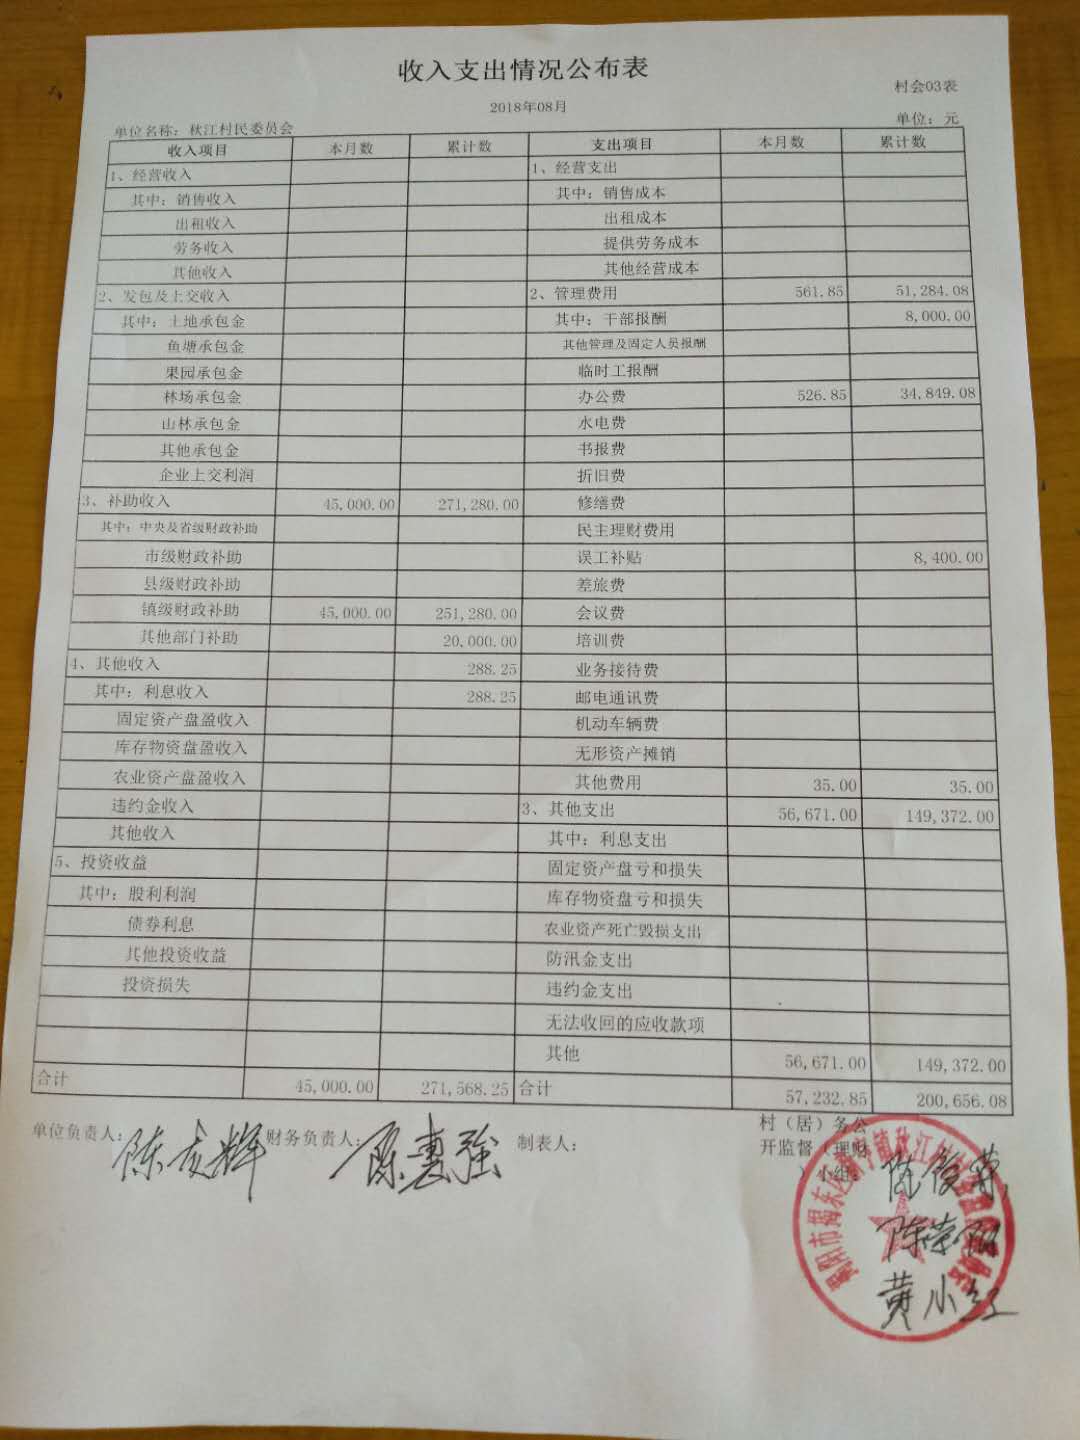 收入支出情况公布表
村会03表
2018年08月
单位名称：秋江村民委员会 单位：元
收入项目 本月数 累计数 支出项目 本月数 累计数
1、经营收入 1、经营支出
其中：销售收入 其中：销售成本
出租收入 出租成本
劳务收入 提供劳务成本
其他收入 其他经营成本
2、发包及上交收入 2、管理费用 561.85 51,284.08
其中：土地承包金 其中：干部报酬 8,000.00
鱼塘承包金 其他管理及固定人员报酬
果园承包金 临时工报酬
林场承包金 办公费 526.85 34,849.08
山林承包金 水电费
其他承包金 书报费
企业上交利润 折旧费
3、补助收入 45,000.00 271,280.00 修缮费
其中：中央及省级财政补助 民主理财费用
市级财政补助 误工补贴 8,400.00
县级财政补助 差旅费
镇级财政补助 45,000.00 251,280.00 会议费
其他部门补助 20,000.00 培训费
4、其他收入 288.25 业务接待费
其中：利息收入 288.25 邮电通讯费
固定资产盘盈收入 机动车辆费
库存物资盘盈收入 无形资产摊销
农业资产盘盈收入 其他费用 35.00 35.00
违约金收入 3、其他支出 56,671.00 149,372.00
其他收入 其中：利息支出
5、投资收益 固定资产盘亏和损失
其中：股利利润 库存物资盘亏和损失
债券利息 农业资产死亡毁损支出
其他投资收益 防汛金支出
投资损失 违约金支出
无法收回的应收款项
其他 56,671.00 149,372.00
合计 45,000.00 271,568.25 合计 57,232.85 200,656.08
单位负责人： 财务负责人： 陈惠强 制表人：
村（居）务公
开监督（理财
）小组：
黄小红